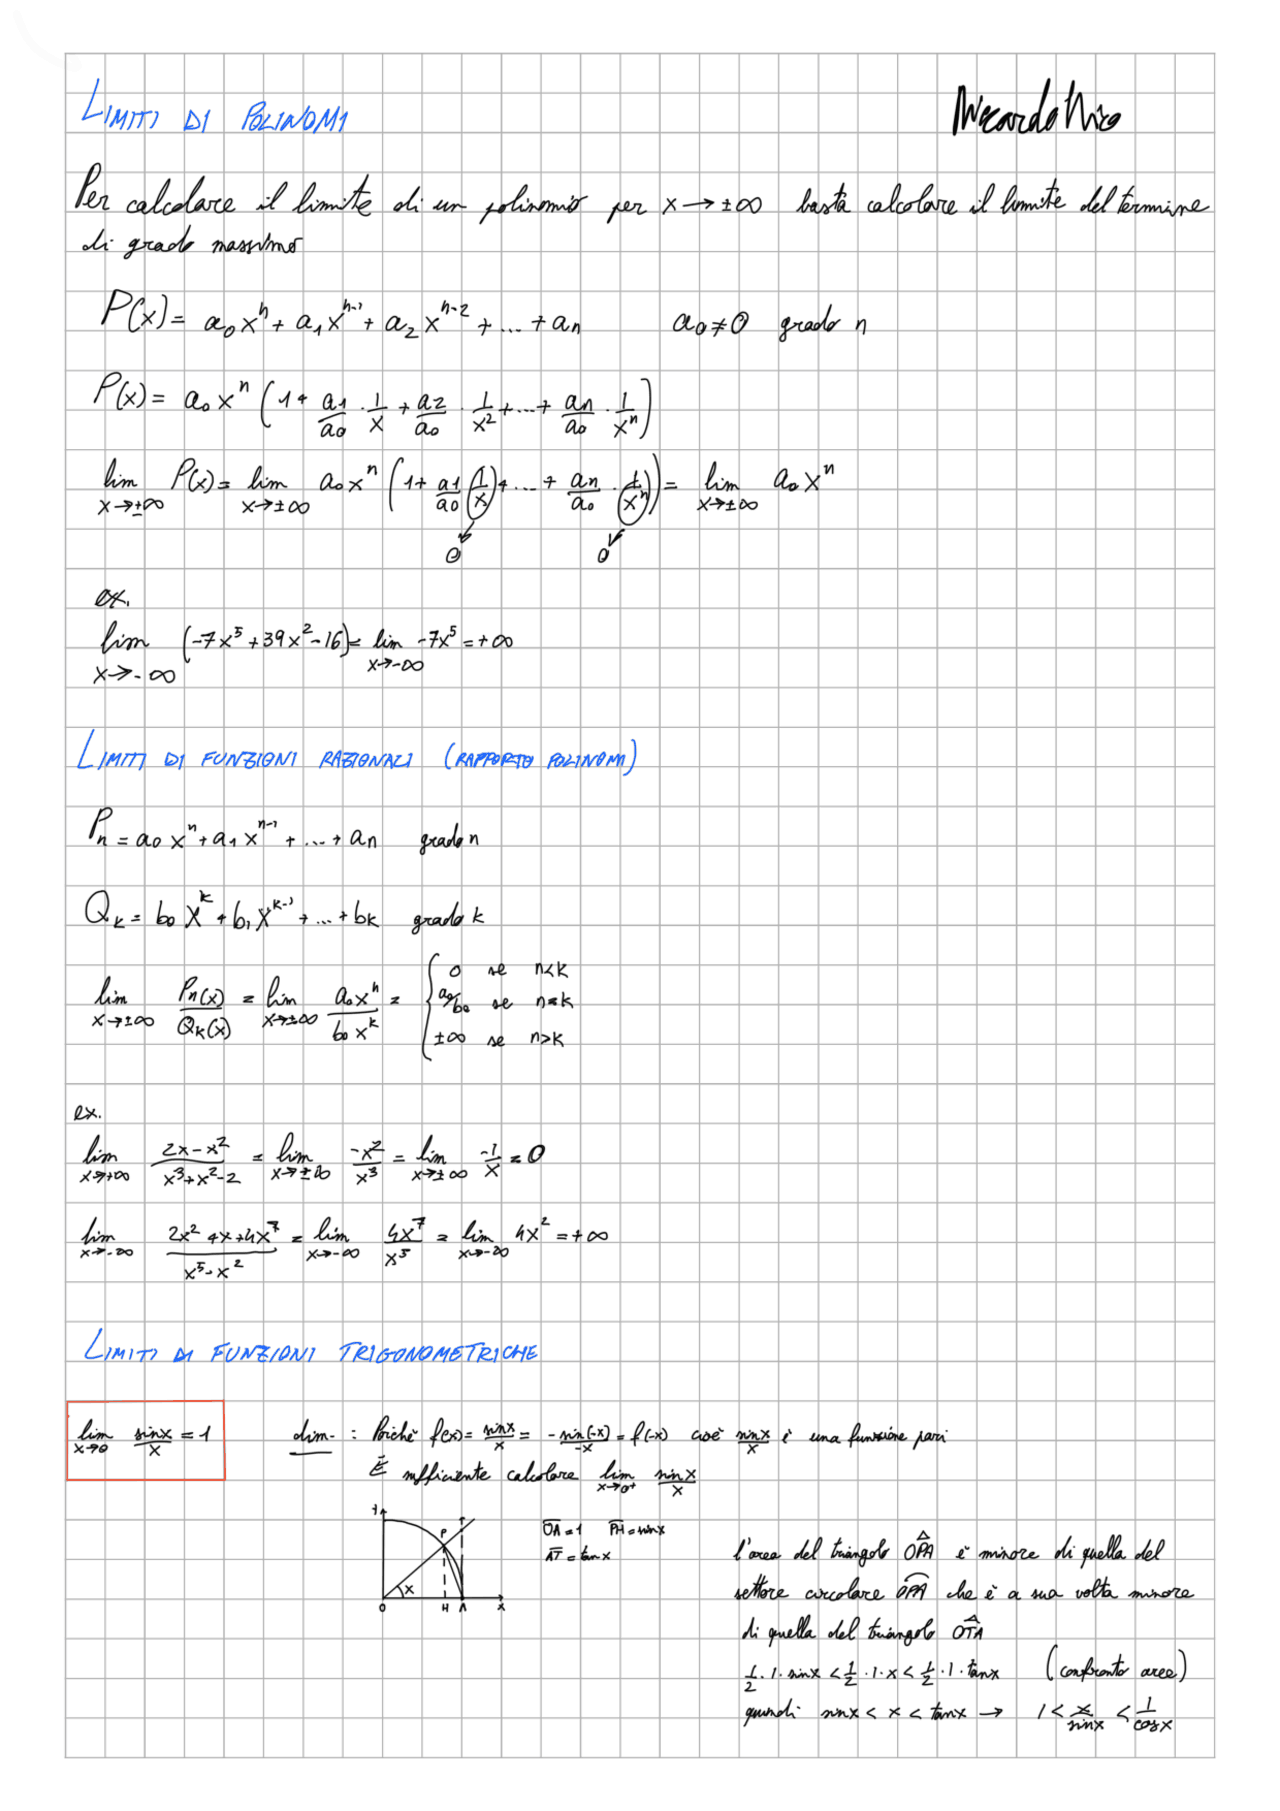 LIMITI DI POLINOMI
Riccardo Nico
Per calcolare il limite di un polinomio per x → ±∞ basta calcolare il limite del termine
di grado massimo
P(x) = a₀xⁿ + a₁xⁿ⁻¹ + a₂xⁿ⁻² + ... + aₙ   a₀ ≠ 0   grado n
P(x) = a₀xⁿ (1 + a₁/a₀ · 1/x + a₂/a₀ · 1/x² + ... + aₙ/a₀ · 1/xⁿ)
lim x→±∞ P(x) = lim x→±∞ a₀xⁿ (1 + a₁/a₀ (1/x) + ... + aₙ/a₀ · (1/xⁿ)) = lim x→±∞ a₀xⁿ
0   0
ex.
lim x→-∞ (-7x⁵ + 39x² - 16) = lim x→-∞ -7x⁵ = +∞
LIMITI DI FUNZIONI RAZIONALI (RAPPORTO POLINOMI)
Pₙ = a₀xⁿ + a₁xⁿ⁻¹ + ... + aₙ   grado n
Qₖ = b₀xᵏ + b₁xᵏ⁻¹ + ... + bₖ   grado k
lim x→±∞ Pₙ(x)/Qₖ(x) = lim x→±∞ a₀xⁿ/b₀xᵏ = { 0 se n<k
a₀/b₀ se n=k
±∞ se n>k
ex.
lim x→+∞ (2x - x²)/(x³ + x² - 2) = lim x→±∞ -x²/x³ = lim x→±∞ -1/x = 0
lim x→-∞ (2x² + x + 4x⁷)/(x⁵ - x²) = lim x→-∞ 4x⁷/x⁵ = lim x→-∞ 4x² = +∞
LIMITI DI FUNZIONI TRIGONOMETRICHE
lim x→0 sinx/x = 1   dim. : Poiché f(x) = sinx/x = -sin(-x)/-x = f(-x) cioè sinx/x è una funzione pari
È sufficiente calcolare lim x→0⁺ sinx/x
y
P T
O x H A x
OA = 1   PH = sinx
AT = tanx
l'area del triangolo OPA è minore di quella del
settore circolare OPA che è a sua volta minore
di quella del triangolo OTA
1/2 · 1 · sinx < 1/2 · 1 · x < 1/2 · 1 · tanx   (confronto aree)
quindi sinx < x < tanx → 1 < x/sinx < 1/cosx